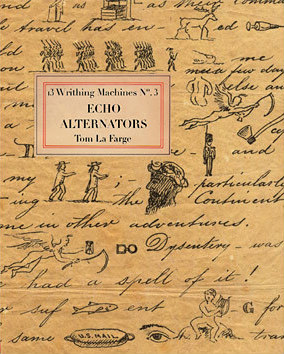 travel has en
me
a few day
else an
13 Writhing Machines Nº. 3
ECHO
ALTERNATORS
Tom La Farge
and
my i- particularly
ing Continent
me in other adventures.
DO Dysentery - was
had a spell of it!
r suf ent - G for
same U.S. MAIL